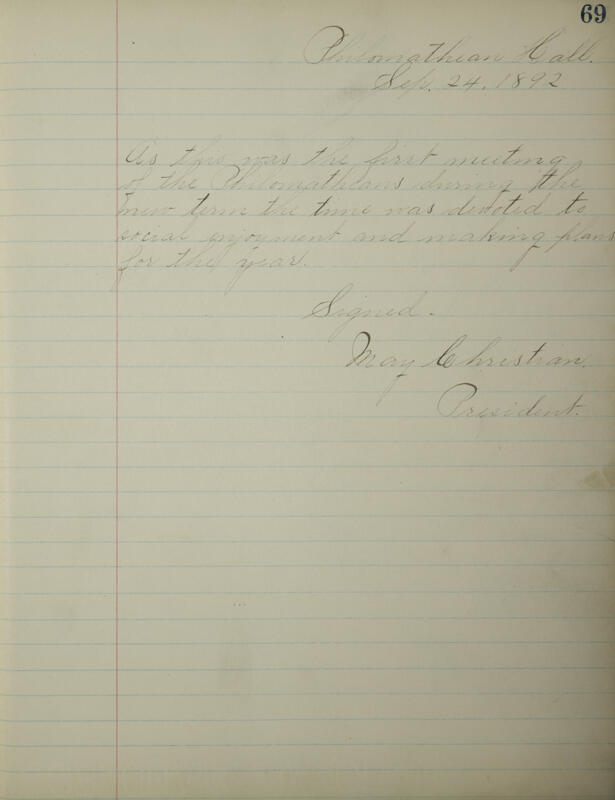 69
Philomathean Hall.
Sep. 24, 1892
As this was the first meeting
of the Philomatheans during the
new term the time was devoted to
social enjoyment and making plans
for the year.
Signed.
May Christian.
President.